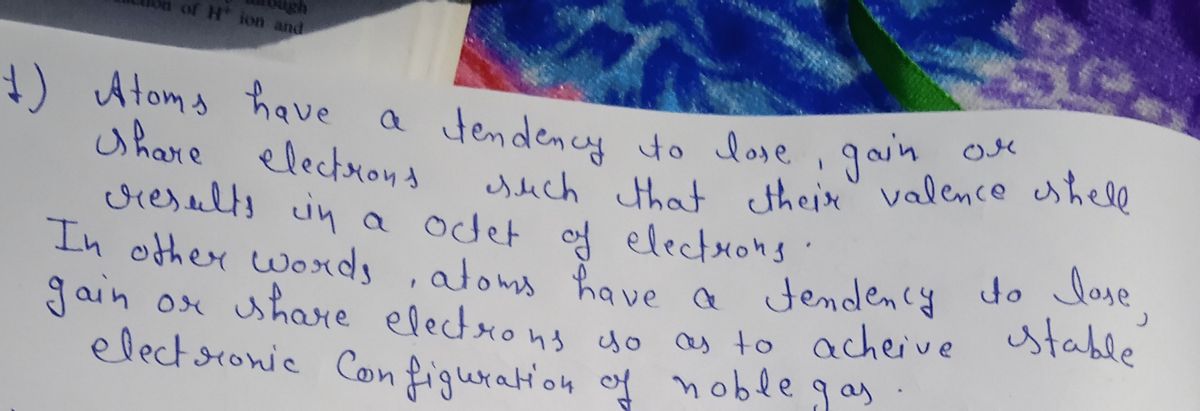 through
of H+ ion and
1) Atoms have a tendency to lose, gain or
share electrons such that their valence shell
results in a octet of electrons.
In other words, atoms have a tendency to lose,
gain or share electrons so as to acheive stable
electronic Configuration of noble gas.